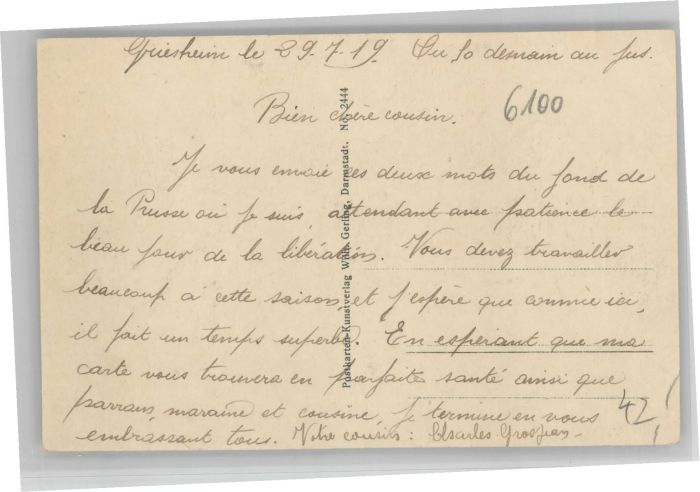 Griesheim le 29.7.19. Ou 50 demain au jus.
6100
Bien chère cousin.
Je vous envoie ces deux mots du fond de
la Prusse où je suis, attendant avec patience le
beau jour de la libération. Vous devez travailler
beaucoup à cette saison et j'espère que comme ici,
il fait un temps superbe. En espérant que ma
carte vous trouvera en parfaite santé ainsi que
parrain, maraine et cousine, je termine en vous
embrassant tous. Votre cousin : Charles Grosjean
42
Postkarten-Kunstverlag Wilh. Gerling, Darmstadt. No. 2444